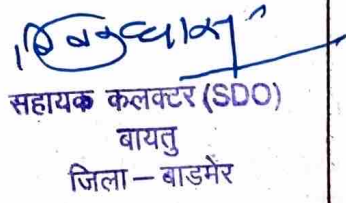 सहायक कलक्टर (SDO)
बायतु
जिला – बाडमेर